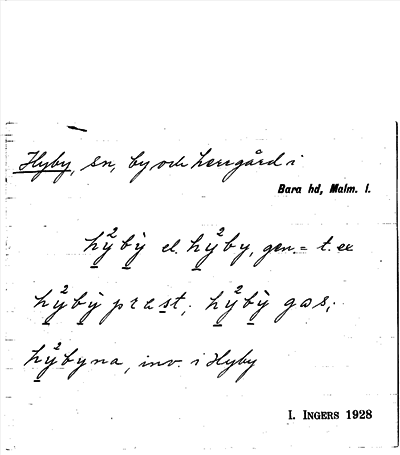 Hyby, sn, by och herrgård i
Bara hd, Malm. l.
hy²bỳ el. hy²by, gen. = t. ex
hy²bỳ præst, hy²bỳ gås,
hy²byna, inv. i Hyby
I. INGERS 1928